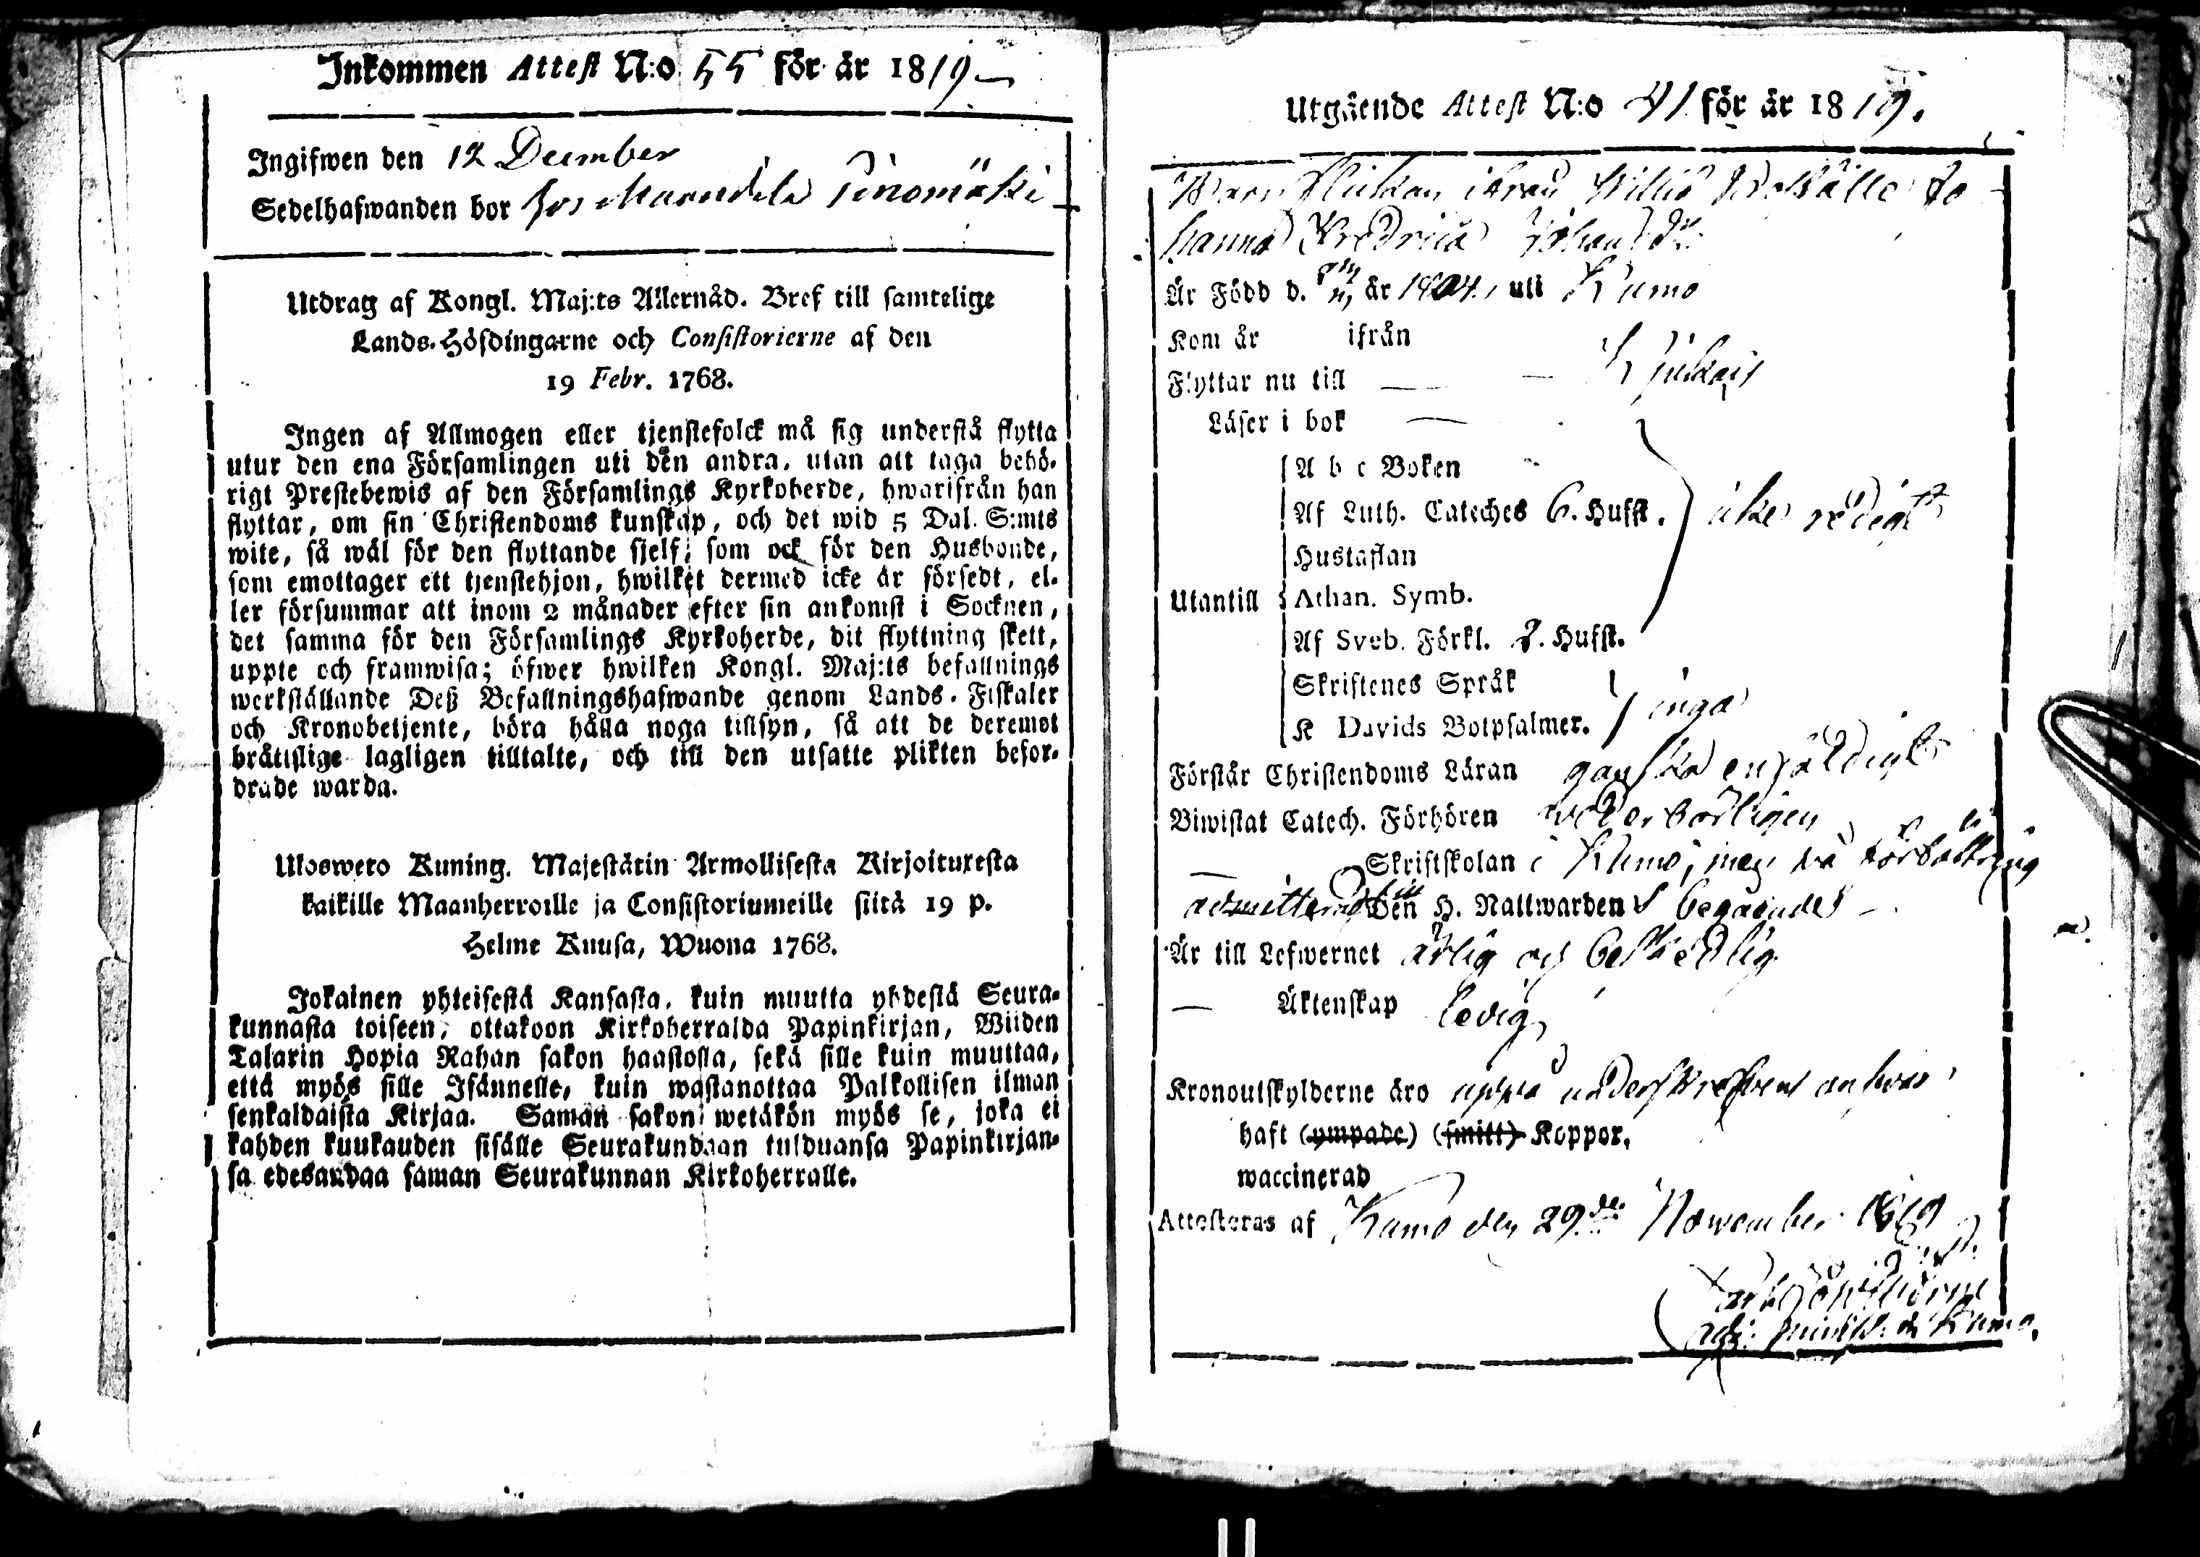 Inkommen Attest N:o 55 för år 1819
Ingifwen den 12 December
Sedelhafwanden bor hos
Utdrag af Kongl. Maj:ts Allernåd. Bref till samtelige
Lands-Höfdingarne och Consistorierne af den
19 Febr. 1768.
Ingen af Allmogen eller tjenstefolck må sig understå flytta
utur den ena Församlingen uti den andra, utan att taga behö-
rigt Prestebewis af den Församlings Kyrkoherde, hwarifrån han
flyttar, om sin Christendoms kunskap, och det wid 5 Dal. S:mts
wite, så wäl för den flyttande sjelf, som ock för den Husbonde,
som emottager ett tjenstehjon, hwilket dermed icke är försedt, el-
ler försummar att inom 2 månader efter sin ankomst i Socknen,
det samma för den Församlings Kyrkoherde, dit flyttning skett,
uppte och framwisa; öfwer hwilken Kongl. Maj:ts befallnings
werkställande Deß Befallningshafwande genom Lands-Fiskaler
och Kronobetjente, böra hålla noga tillsyn, så att de deremot
bråttslige lagligen tilltalte, och till den utsatte plikten befor-
drade warda.
Uloswero Kuning. Majestätin Armollisesta Kirjoituxesta
kaikille Maanherroille ja Consistoriumeille siitä 19 p.
Helme Kuusa, Wuona 1768.
Jokainen yhteisestä Kansasta, kuin muutta yhdestä Seura-
kunnasta toiseen, ottakoon Kirkoherralda Papinkirjan, Wiiden
Talarin Hopia Rahan sakon haastosta, sekä sille kuin muuttaa,
että myös sille Isännelle, kuin wastanottaa Palkollisen ilman
senkaldaista Kirjaa. Saman sakon wetäkön myös se, joka ei
kahden kuukauden sisälle Seurakundaan tulduansa Papinkirjan-
sa edesandaa saman Seurakunnan Kirkoherralle.
Utgående Attest N:o 41 för år 1819.
Flickan ifrån Jo-
hanna Fredrica Johansdr
Är Född d. år 1804, uti Kumo
Kom år ifrån
Flyttar nu till Kjulais
Läser i bok
A b c Boken
Af Luth. Cateches 6. Hufst. icke redigt
Hustaflan
Utantill Athan. Symb.
Af Sveb. Förkl. 2. Hufst.
Skriftenes Språk
K Davids Botpsalmer. inga
Förstår Christendoms Läran ganska enfaldigt
Biwistat Catech. Förhören wederbörligen
Skriftskolan i Kumo, men på förbättring
admitterad till den H. Nattwardens begående
Är till Lefwernet ärlig och beskedlig
Äktenskap ledig
Kronoutskylderne äro uppå underskrefvens answar
haft (ympade) (smitt) Koppor.
waccinerad
Attesteras af Kumo den 29de November 1819
adj: minist: i Kumo.